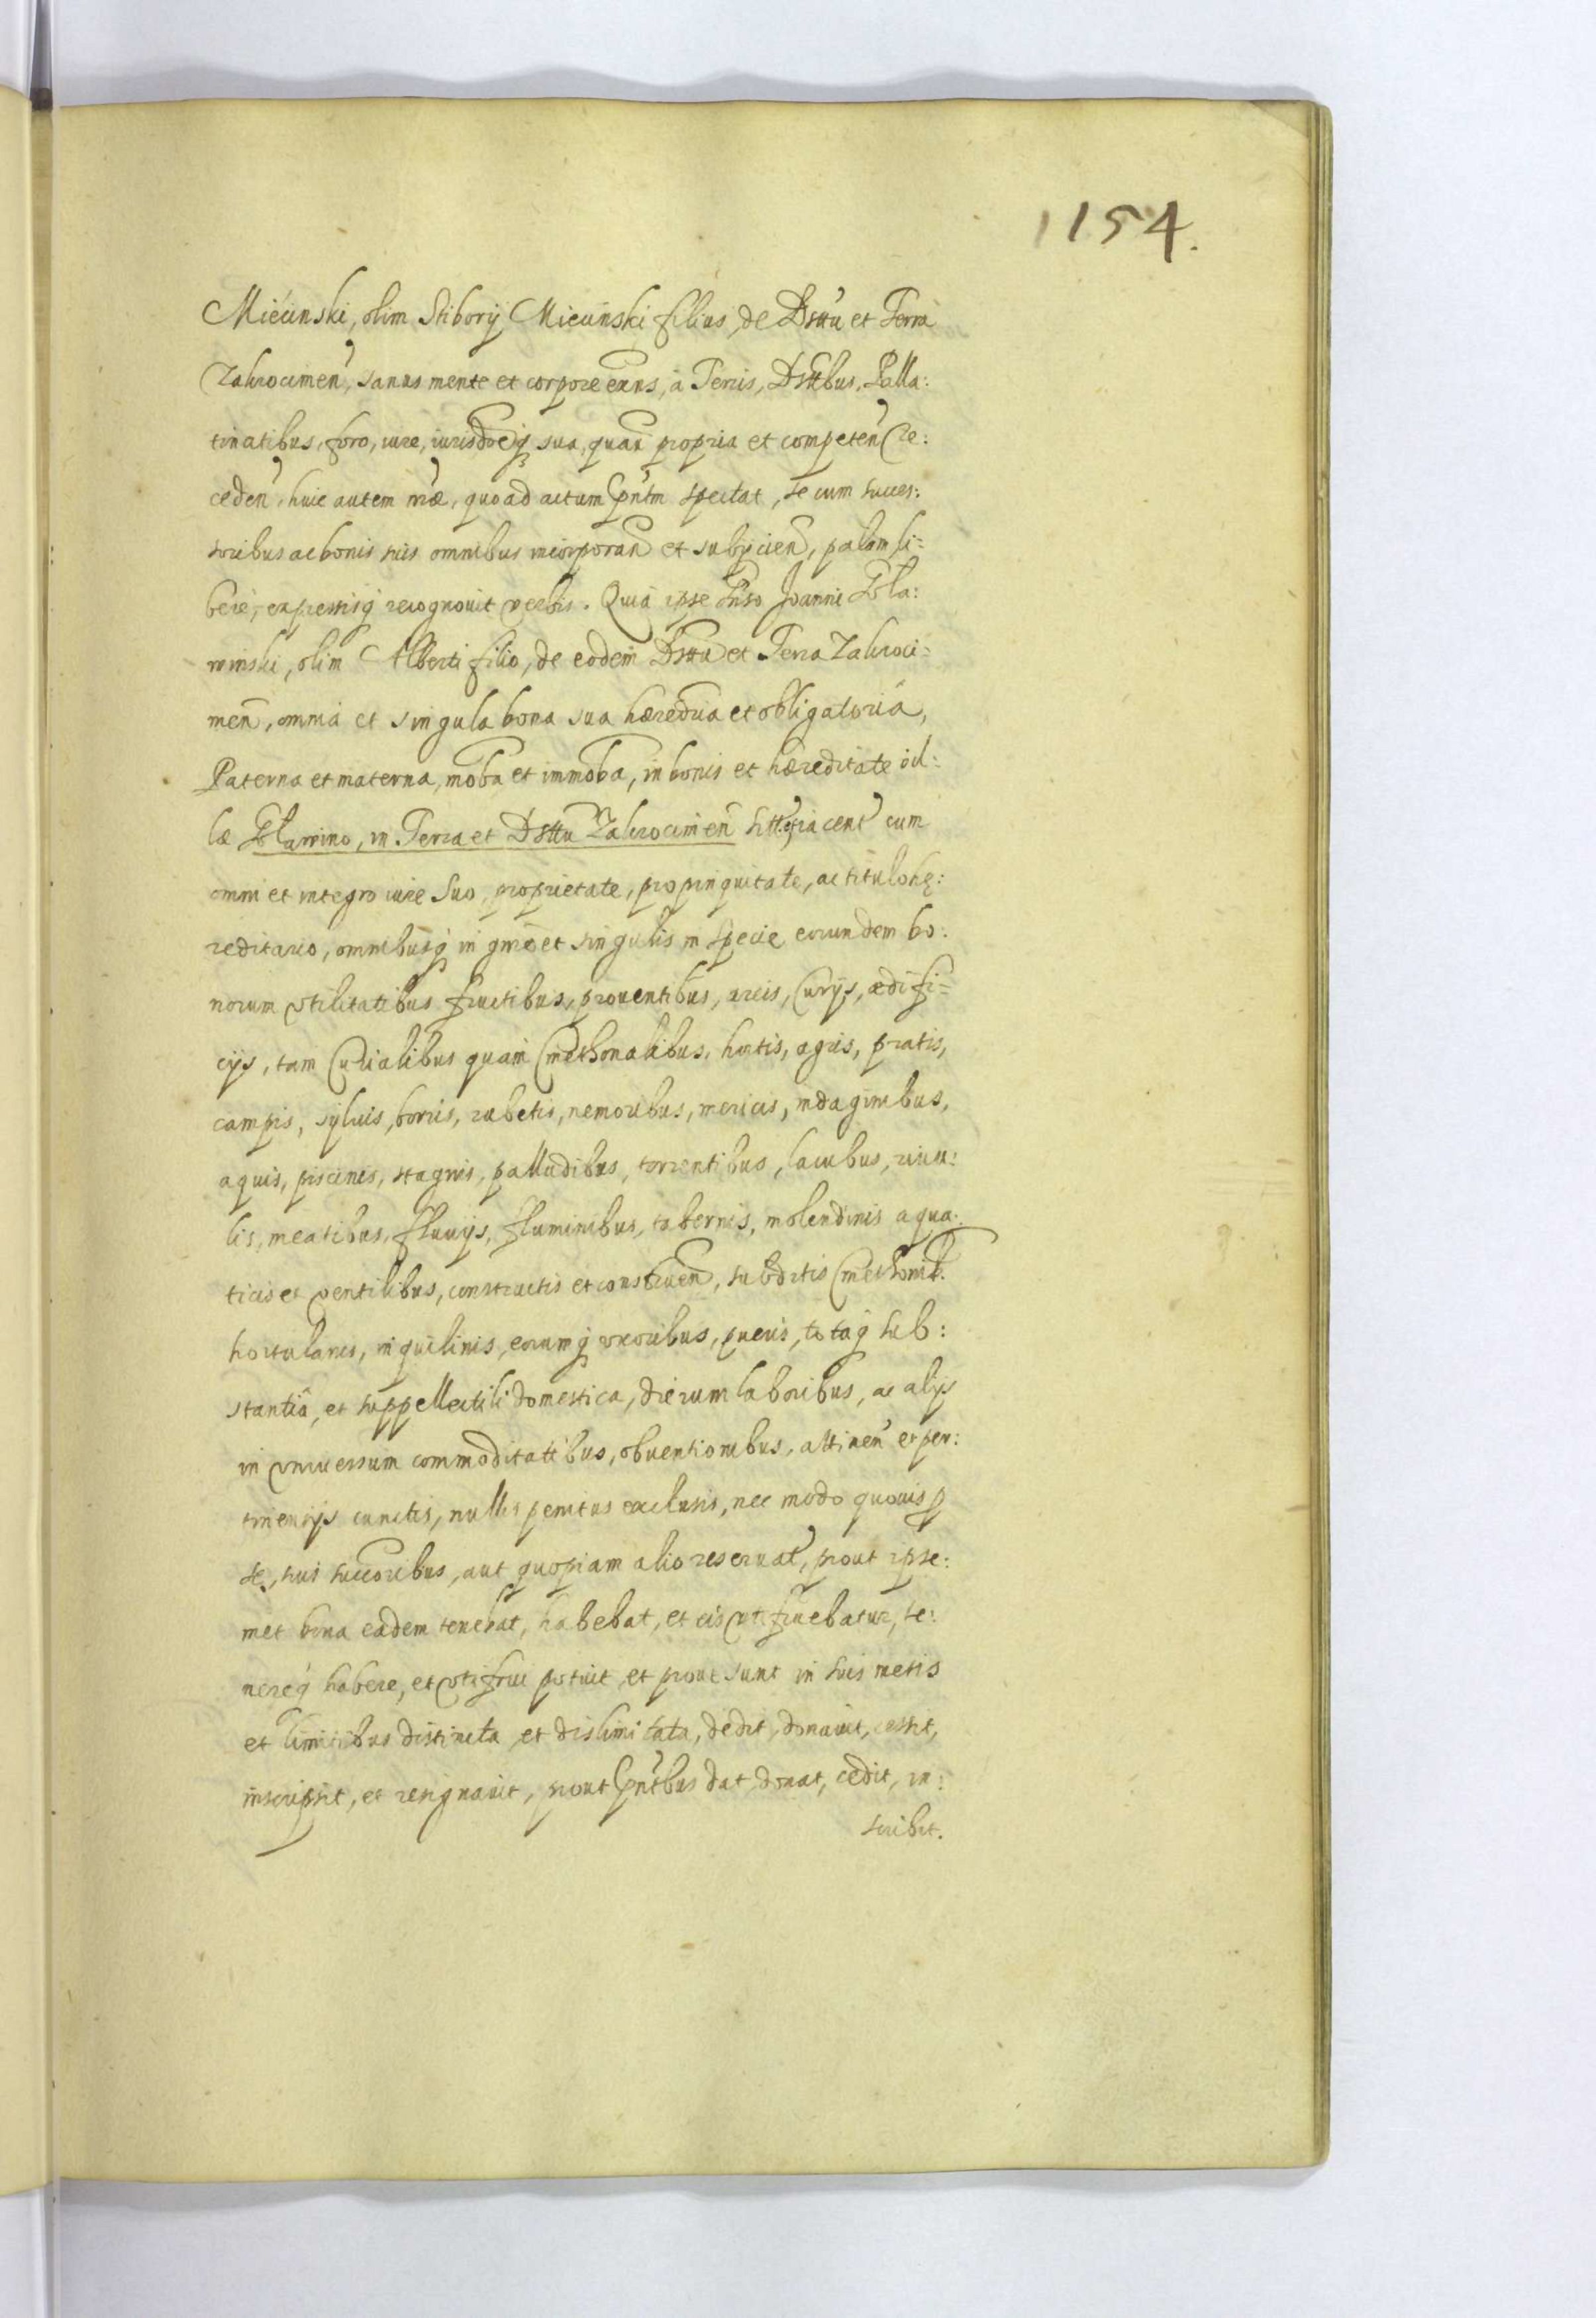 1154.
Miecinski, olim Stiborij Miecinski filius, de Dsttu et Terra
Zakrocimen, sanus mente et corpore exns, à Terris, Dsttbus, Palla:
tinatibus, foro, iure, iurisdoeq sua, quavi propria et competen Re:
ceden, huic autem nræ, quoad actum pntm spectat, se cum succes:
soribus ac bonis suis omnibus incorporan et subijcien, palam li=
berè, expressisq recognouit verbis. Quia ipse Gnso Joanni
winski, olim Alberti filio, de eodem Dsttu et Terra Zakroci=
men, omnia et singula bona sua hæredria et obligatoria,
Paterna et materna, moba et immoba, in bonis et hæreditate vil:
læ in Terra et Dsttu Zakrocimen sitt. et iacent cum
omni et integro iure suo, proprietate, propinquitate, ac titulo hę:
reditario, omnibusq in gnre et singulis in specie eorundem bo:
norum vtilitatibus fructibus, prouentibus, areis, Curijs, ædifi=
cijs, tam Curialibus quam Cmethonalibus, hortis, agris, pratis,
campis, syluis, borris, rubetis, nemoribus, mericis, indaginibus,
aquis, piscinis, stagnis, palludibus, torrentibus, lacubus, riuu:
lis, meatibus, fluuijs, fluminibus, tabernis, molendinis aqua:
ticis et ventilibus, constructis et construen, subditis Cmethonib.
hortulanis, inquilinis, eorumq vxoribus, pueris, totaq sub:
stantia, et suppellectili domestica, dierum laboribus, ac alijs
in vniuersum commoditatibus, obuentionibus, attinen et per:
tinentijs cunctis, nullis penitus exclusis, nec modo quouis p
se, suis succoribus, aut quopiam alio reseruat, prout ipse:
met bona eadem tenebat, habebat, et eis vti fruebatur, te:
nereq habere, et vti frui potuit, et prout sunt in suis metis
et limitibus distincta et dislimitata, dedit, donauit, cessit,
inscripsit, et resignauit, prout pntbus dat, donat, cedit, in:
scribit.